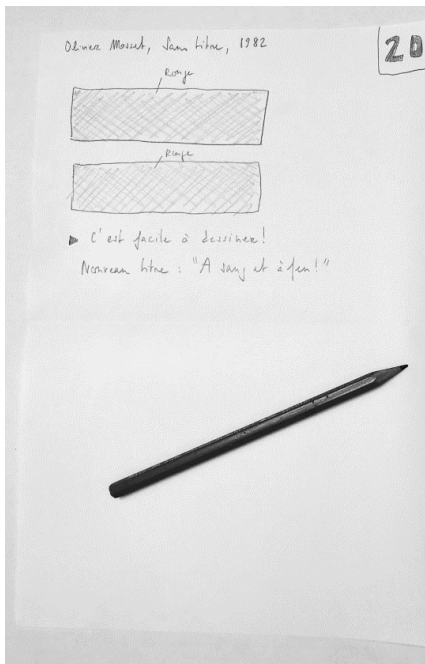 Olivier Mosset, Sans titre, 1982
20
Rouge
Rouge
C'est facile à dessiner!
Nouveau titre : "A sang et à feu!"